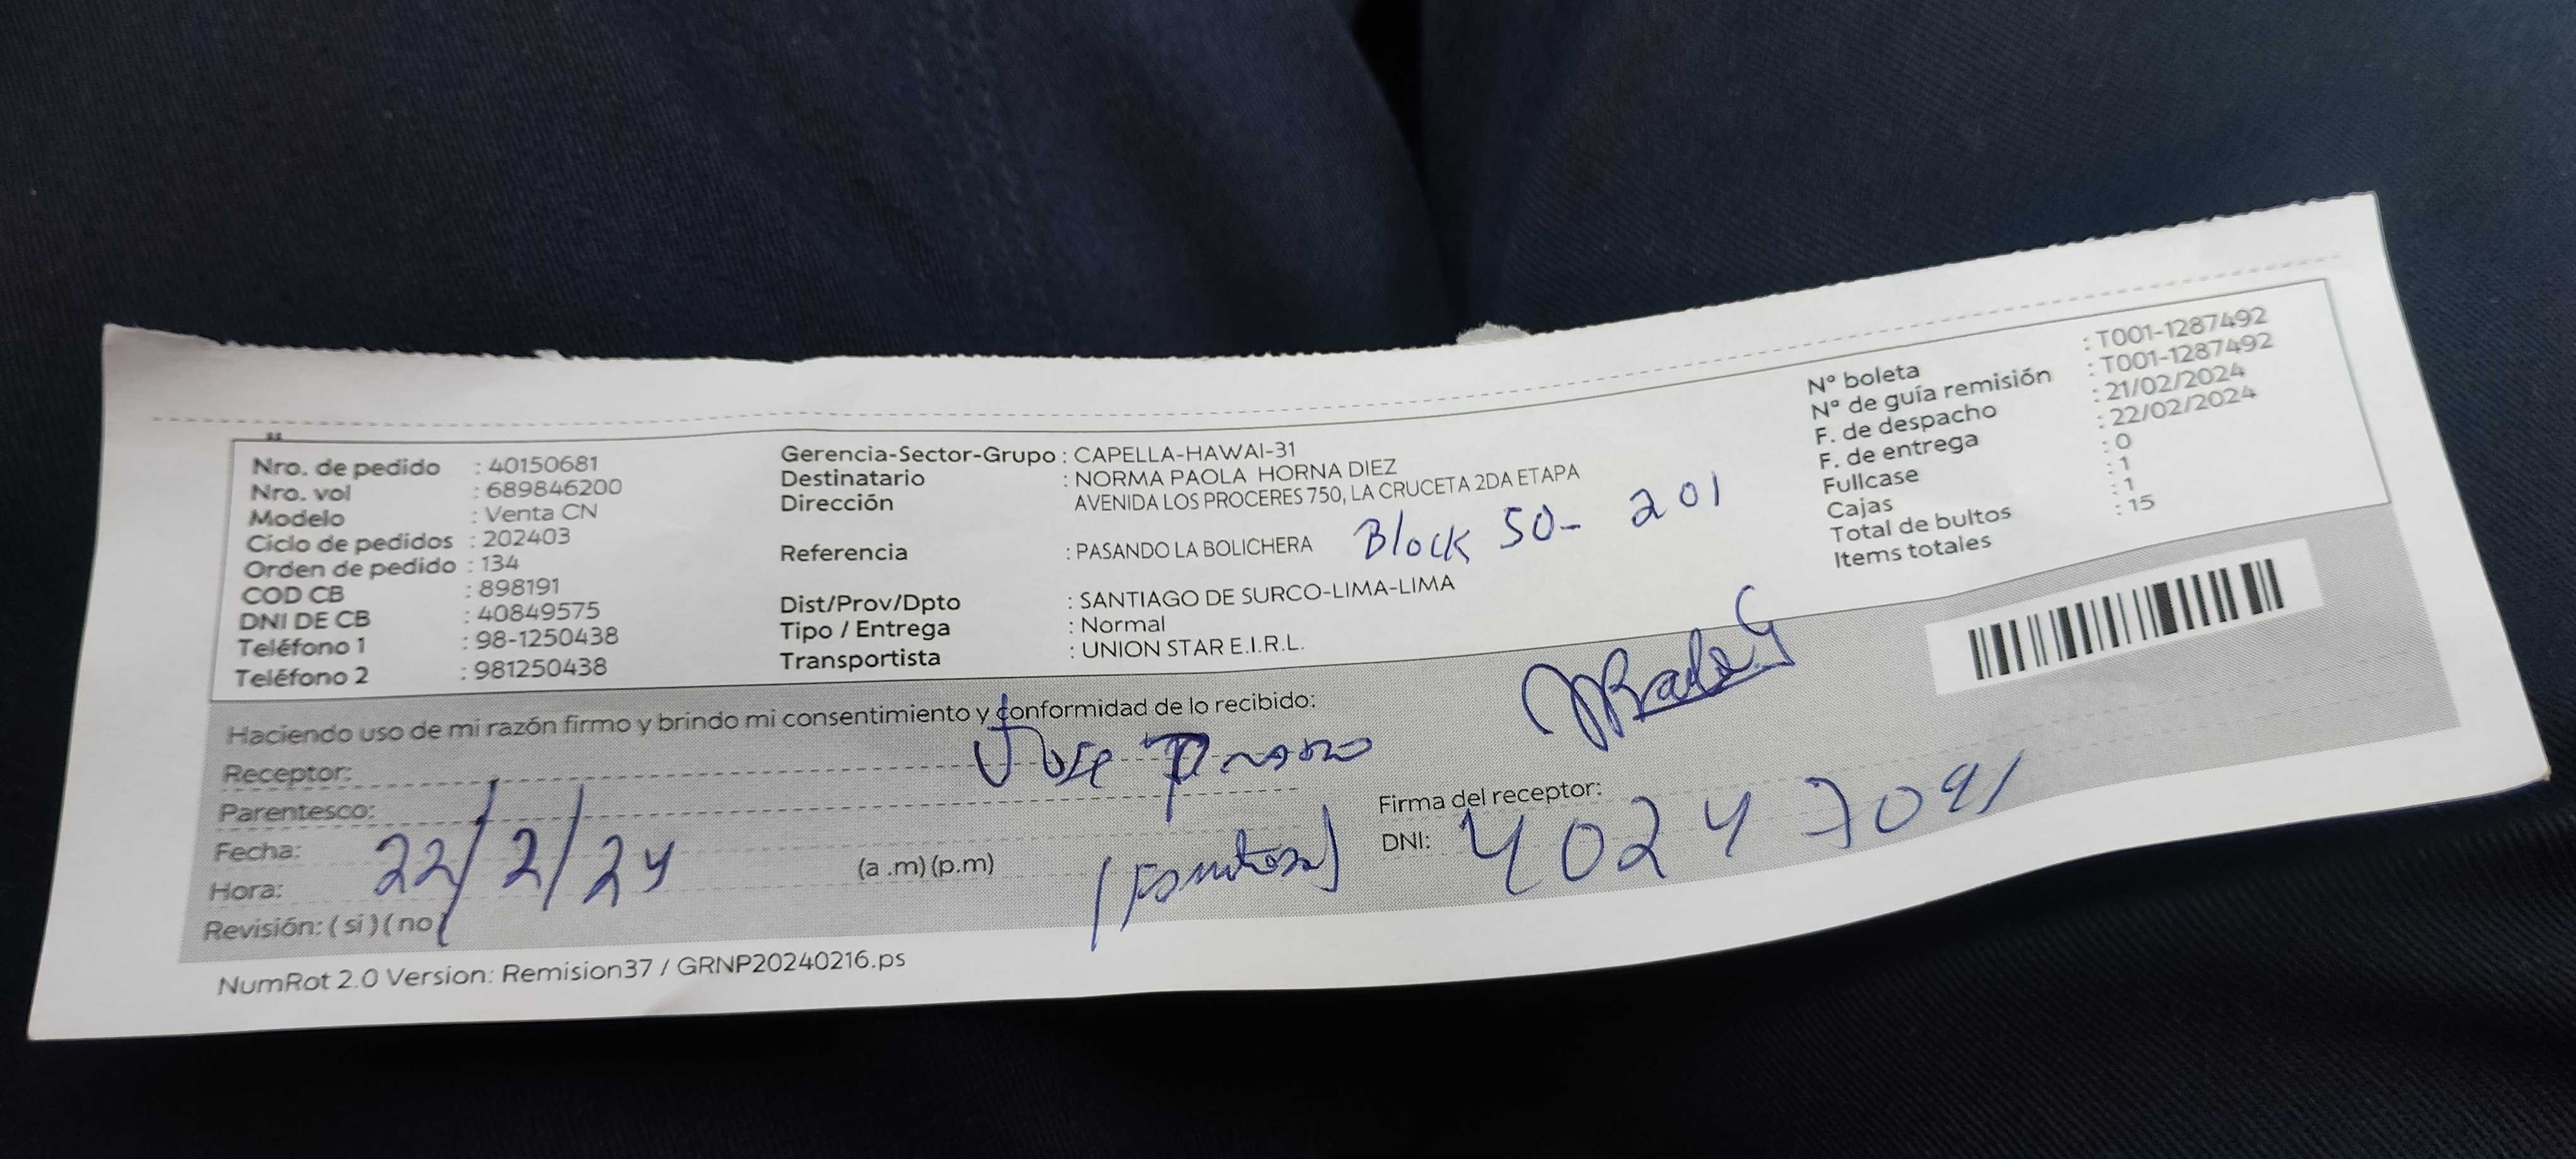 Nro. de pedido : 40150681
Nro. vol : 689846200
Modelo : Venta CN
Ciclo de pedidos : 202403
Orden de pedido : 134
COD CB : 898191
DNI DE CB : 40849575
Teléfono 1 : 98-1250438
Teléfono 2 : 981250438
Gerencia-Sector-Grupo : CAPELLA-HAWAI-31
Destinatario : NORMA PAOLA HORNA DIEZ
Dirección AVENIDA LOS PROCERES 750, LA CRUCETA 2DA ETAPA
Referencia : PASANDO LA BOLICHERA Block 50- 201
Dist/Prov/Dpto : SANTIAGO DE SURCO-LIMA-LIMA
Tipo / Entrega : Normal
Transportista : UNION STAR E.I.R.L.
N° boleta : T001-1287492
N° de guía remisión : T001-1287492
F. de despacho : 21/02/2024
F. de entrega : 22/02/2024
Fullcase : 0
Cajas : 1
Total de bultos : 1
Items totales : 15
Haciendo uso de mi razón firmo y brindo mi consentimiento y conformidad de lo recibido:
Receptor: Jose
Parentesco:
Fecha: 22/2/24
Hora: (a .m) (p.m)
Revisión: ( si ) ( no (
Firma del receptor:
DNI: 40247091
NumRot 2.0 Version: Remision37 / GRNP20240216.ps